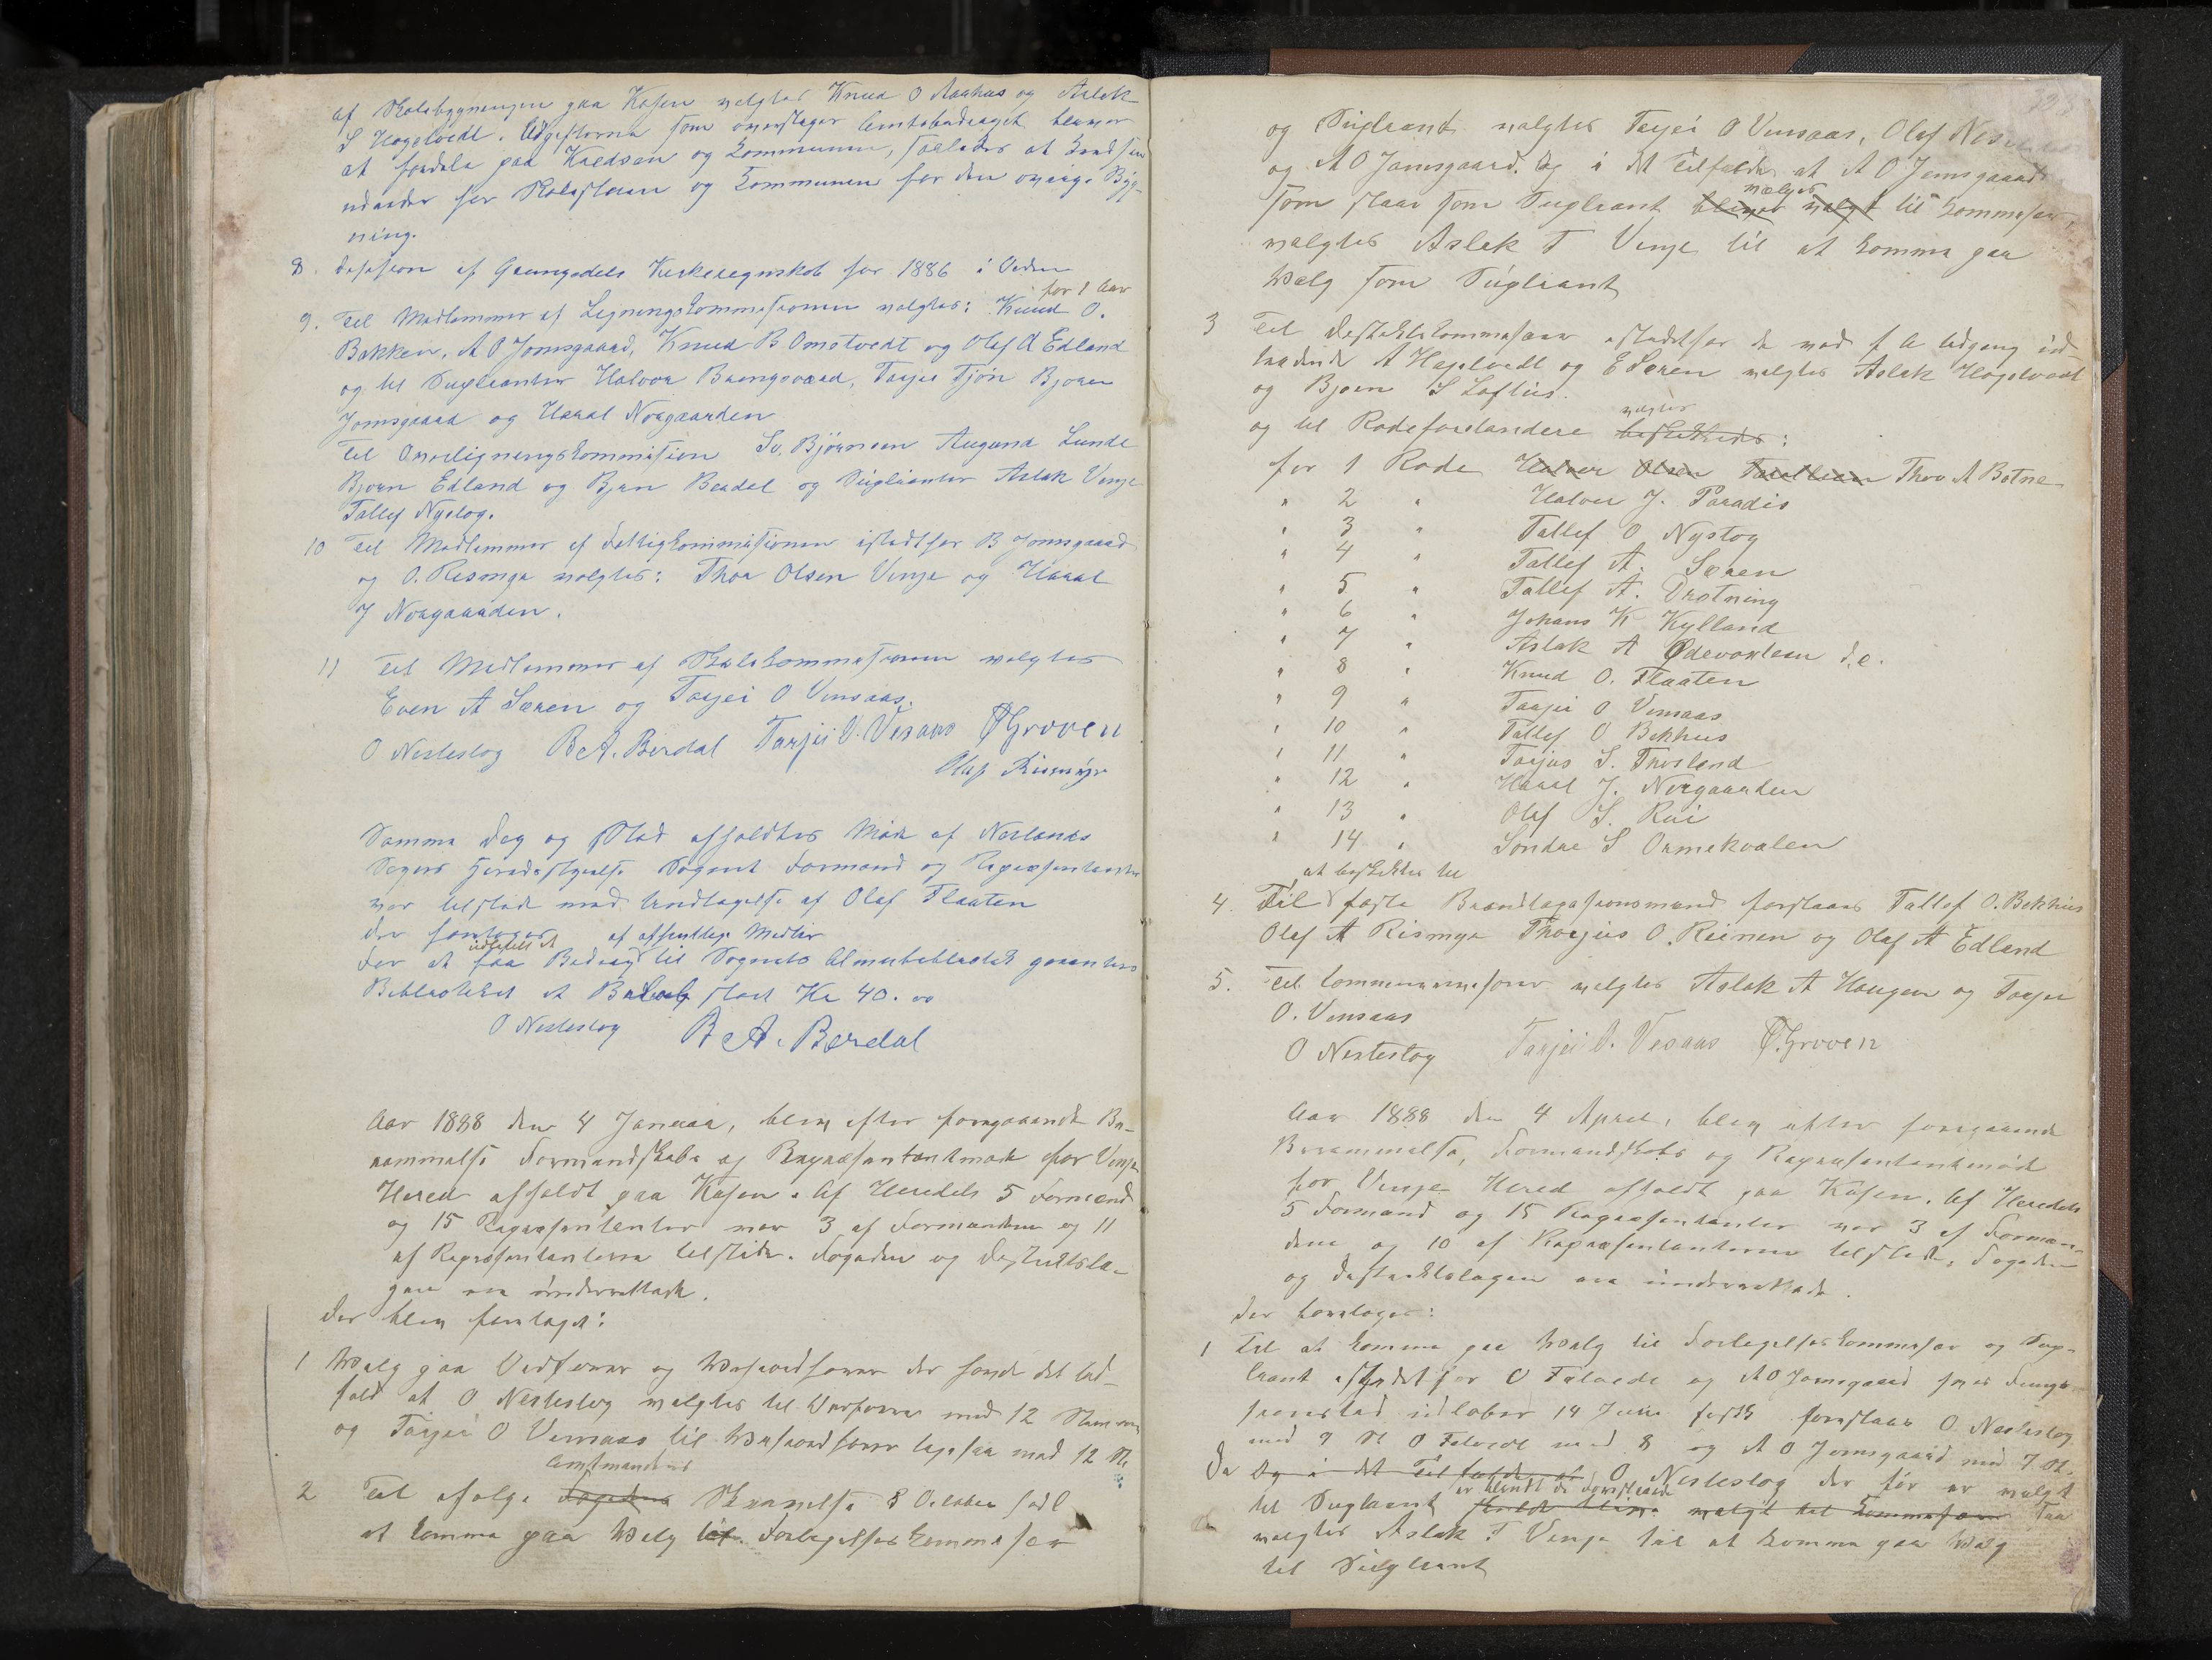 af Skolebygningen paa Kosen valgtes Knud O Aaahus og Aslak
S Hogetvedt. Udgifterne som overstiger Amtsbidraget bliver
at fordele paa Kredsen og Kommunen, saaledes at Kredsen
udreder for Skolestuen og Kommunen for den øvrige Byg-
ning.
8. Desision af Grungedals Kirkeregnskab for 1886 i Orden
for 1 Aar
9. Til Medlemmer af Ligningskommissionen valgtes: Knud O.
Bakken, A O Jamsgaard, Knud B Omotvedt og Olaf A Edland
og til Supleanter Halvor Brengsvaard, Tarjei Tjøn Bjoren
Jamsgaard og Haral Norgaarden
Til Overligningskommisionen Sv. Bjørnsen Augund Lunde
Bjorn Edland og Bjørn Berdal og Supleanter Aslak Venje
Tallef Nystog.
10 Til Medlemmer af Fattigkommissionen istedetfor B Jamsgaard
og O. Rismyr valgtes: Thor Olsen Venje og Haral
J Norgaarden.
11 Til Medlemmer af Skolekommissionen valgtes
Even A Særen og Tarjei O Vinsaas.
O Nesteslog B A. Berdal Tarjei O. Vesaas Ø Groven
Olaf Rismyr
Samme Dag og Sted afholdtes Møde af Neslands
Sogns Heredsstyrelse Sognets Formænd og Repræsentanter
var tilstede med Undtagelse af Olaf Flaaten
Der foretoges
udbetalt et af offentlige Midler
For at faa Bidrag til Sognets Almuebibliothek garanteres
Bibliotheket et Beløb stort Kr 40. 00
O Nesteslog B A. Berdal
Aar 1888 den 4 Januar, blev efter foregaaende Be-
rammelse Formandskabs og Repræsentantmøde for Venje
Hered afholdt paa Kosen. Af Heredets 5 Formænd
og 15 Repræsentanter var 3 af Formændene og 11
af Repræsentanterne tilstede. Fogden og Distriktslæ-
gen var underrettede.
Der blev foretaget:
1 Valg paa Ordfører og Viseordfører der havde det Ud-
fald at O Nesteslog valgtes til Ordfører med 12 Stemmer
og Tarjei O Vinsaas til Viseordfører ligesaa med 12 St.
Amtmandens
2 Til ifølge Fogdens Skrivelse 8 Oktober sidl
at komme paa Valg til Forligelseskommissær
og Supleant valgtes Tarjei O Vinsaas, Olaf Nes
og A O Jamsgaard. Og i det Tilfælde at A O Jamsgaard
vælges
som staar som Supleant bliver valgt til Kommissær,
valgtes Aslak T Venje til at komme paa
Valg som Supleant
3 Til Distriktskommissær istedetfor de ved f A Udgang ud-
trædende A Hagetvedt og E Særen valgtes Aslak Hogetvedt
og Bjørn S Loftus.
valgtes
og til Rodeforstandere beskikkedes:
for 1 Rode Halvor Olsen Thor A Botne
" 2 " Halvor J. Paradis
" 3 " Tallef O Nystog
" 4 " Tallef A. Særen
" 5 " Tallef A. Drotning
" 6 " Johans K Kylland
" 7 " Aslak A Ødevarleen d.e.
" 8 " Knud O. Flaaten
" 9 " Tarjei O Vinsaas
" 10 " Tallef O Bekhus
" 11 " Tarjus S. Trovland
" 12 " Haral J. Norgaarden
" 13 " Olaf S. Rui
" 14 " Sondre S Ormekvalen
at beskikkes til
4. Til faste Brandtaxationsmænd foreslaaes Tallef O. Bekhus
Olaf A Rismyr Thorjus O. Reinen og Olaf A Edland
5. Til valgtes Aslak A Haugen og Tarjei
O. Vinsaas
O Nesteslog Tarjei O. Vesaas Ø. Groven
Aar 1888 den 4 April, blev efter foregaaende
Berammelse, Formandskabs og Repræsentantmøde
for Venje Hered afholdt paa Kosen. Af Heredets
5 Formænd og 15 Repræsentanter var 3 af Formæn-
dene og 10 af Repræsentanterne tilstede, Fogden
og Distriktslægen var underrettede.
Der foretoges:
1 Til at komme paa Valg til Forligelseskommissær og Sup-
leant istedetfor O Felvedt og A O Jamsgaard hvis Funge-
udløber 14 Juni foreslaaes O Nesteslog
med 9 St O Felvedt med 8 og A O Jamsgaard med 7 St.
Da Og i det Tilfælde at O Nesteslog der før er valgt
er blandt de foreslaaede
til Supleant skulde blive valgt til Kommissær saa
valgtes Aslak T Venje til at komme paa Valg
til Supleant